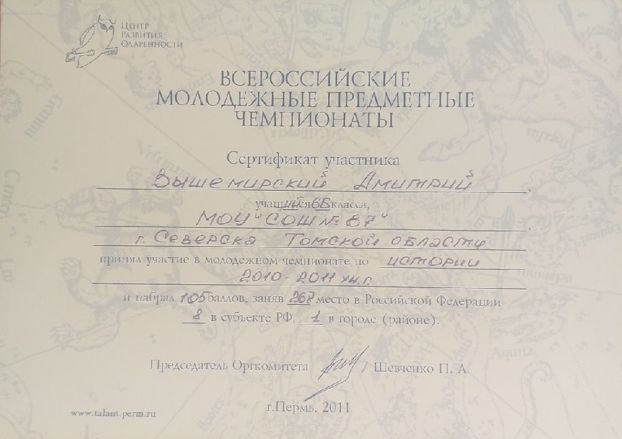 ЦЕНТР
РАЗВИТИЯ
ОДАРЕННОСТИ
ВСЕРОССИЙСКИЕ
МОЛОДЕЖНЫЕ ПРЕДМЕТНЫЕ
ЧЕМПИОНАТЫ
Сертификат участника
Вышемирский Дмитрий
учащийся 6В класса,
МОУ "СОШ № 87"
г. Северска Томской области
принял участие в молодежном чемпионате по истории
2010-2011 уч.г.
и набрал 105 баллов, заняв 267 место в Российской Федерации
8 в субъекте РФ, 1 в городе (районе).
Председатель Оргкомитета / Шевченко П. А.
www.talant.perm.ru
г.Пермь, 2011